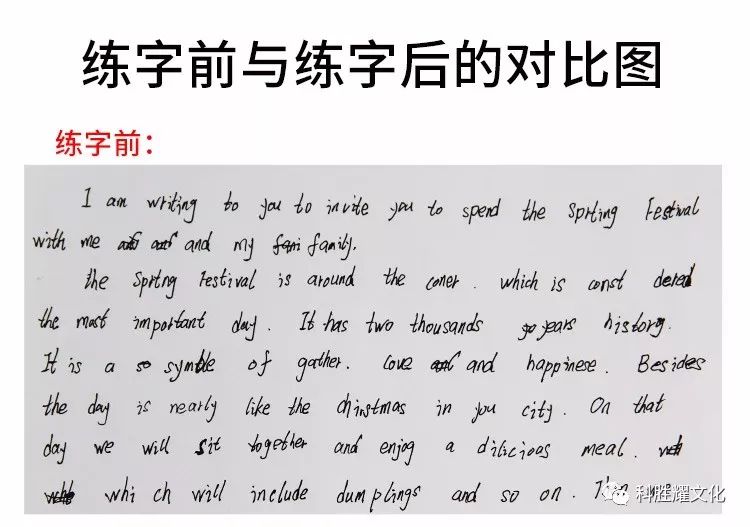 练字前与练字后的对比图
练字前：
I am writing to you to invite you to spend the Sprting Festival
with me and my family.
the Sprtng Festival is around the coner. which is const dered
the most important day. It has two thousands years history.
It is a so symble of gather. love and happinese. Besides
the day is nearly like the chirstmas in you city. On that
day we will sit together and enjog a dilicious meal.
whi ch will include dumplings and so on.
科胜耀文化